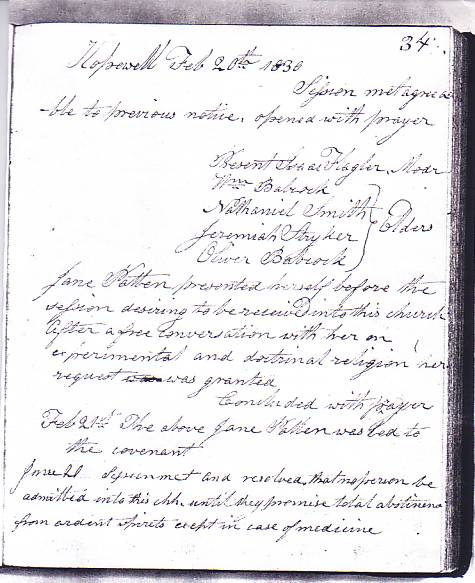 34.
Hopewell Feb 20th 1830
Session met agreea
ble to previous notice. opened with prayer
Present Isaac Flagler, Modr
Wm Babcock
Nathaniel Smith
Jeremiah Stryker
Oliver Babcock
Elders
Jane Patten presented herself before the
session desiring to be received into this church
After a free conversation with her on
experimental and doctrinal religion her
request was was granted
Concluded with prayer
Feb 21st The above Jane Patten was led to
the covenant
June 21 Session met and resolved, that no person be
admitted into this chh. until they promise total abstinence
from ardent spirits except in case of medicine